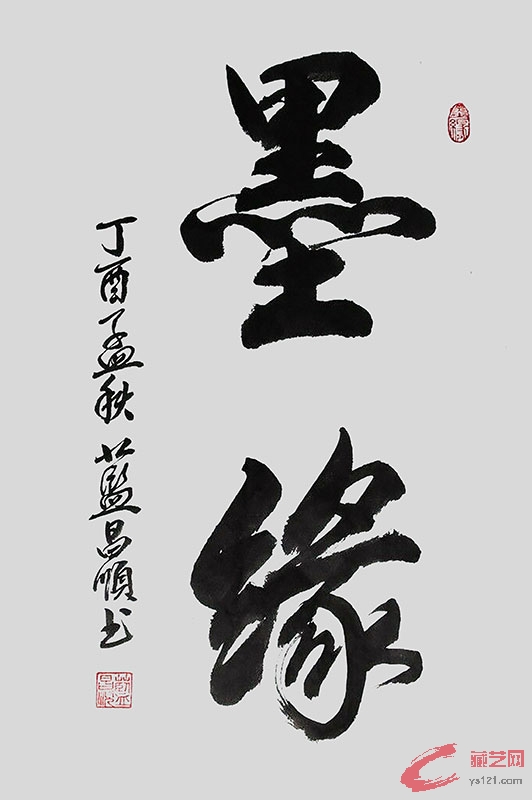 墨缘
丁酉孟秋 蓝昌顺书
藏艺网
ys121.com